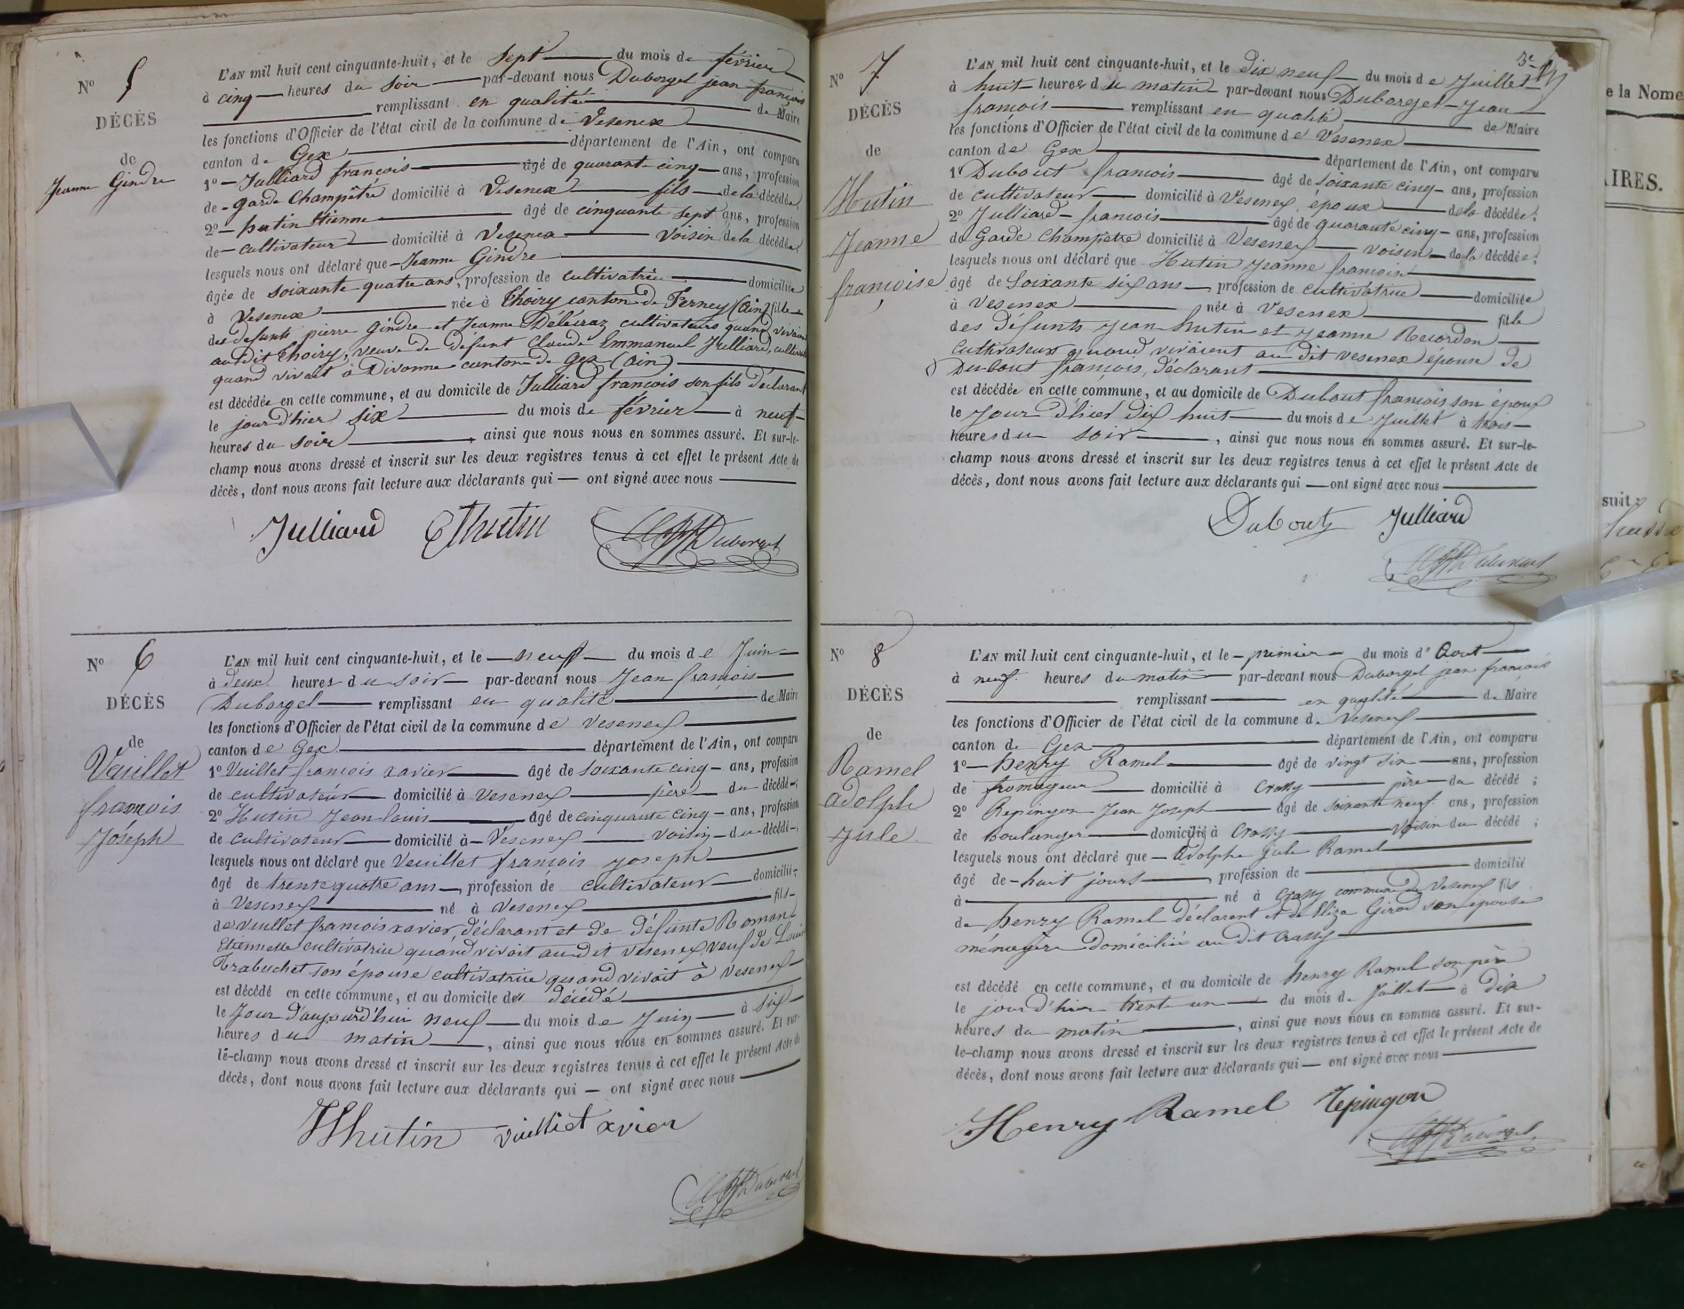 N° 5
DÉCÈS
de
Jeanne Gindre
L'AN mil huit cent cinquante-huit, et le sept du mois de février
à cinq heures du soir par-devant nous Duborgel jean françois
remplissant en qualité de Maire
les fonctions d'Officier de l'état civil de la commune de Vesenex
canton de Gex département de l'Ain, ont comparu
1° Julliard françois âgé de quarante cinq ans, profession
de garde Champêtre domicilié à Vesenex fils de la décédée,
2° hutin Etienne âgé de cinquante sept ans, profession
de cultivateur domicilié à Vesenex Voisin de la décédée
lesquels nous ont déclaré que Jeanne Gindre
âgée de soixante quatre ans, profession de cultivatrice domiciliée
à Vesenex née à Thoiry canton de Ferney (Ain) fille
des defunts pierre Gindre et Jeanne Déléiraz cultivateurs quand vivaient
au dit Thoiry, veuve de defunt Claude Emmanuel Julliard, cultivateur
quand vivait à Divonne canton de Gex (Ain)
est décédée en cette commune, et au domicile de Julliard françois son fils déclarant
le jour d'hier six du mois de février à neuf
heures du soir, ainsi que nous nous en sommes assuré. Et sur-le-
champ nous avons dressé et inscrit sur les deux registres tenus à cet effet le présent Acte de
décès, dont nous avons fait lecture aux déclarants qui ont signé avec nous
Julliard Ehutin Duborgel
N° 6
DÉCÈS
de
Veuillet
francois
Joseph
L'AN mil huit cent cinquante-huit, et le neuf du mois de Juin
à deux heures du soir par-devant nous Jean françois
Duborgel remplissant en qualité de Maire
les fonctions d'Officier de l'état civil de la commune de Vesenex
canton de Gex département de l'Ain, ont comparu
1° Veuillet francois xavier âgé de soixante cinq ans, profession
de cultivateur domicilié à Vesenex père du décédé,
2° Hutin Jean louis âgé de cinquante cinq ans, profession
de cultivateur domicilié à Vesenex Voisin du décédé,
lesquels nous ont déclaré que Veuillet françois Joseph
âgé de trente quatre ans, profession de cultivateur domicilié
à Vesenex né à Vesenex fils
de Veuillet francois xavier, déclarant et de défunte Roman
Etiennette cultivatrice quand vivoit au dit Vesenex, veuf de Louise
Trabuchet son épouse cultivatrice quand vivoit à Vesenex
est décédé en cette commune, et au domicile du décédé
le Jour d'aujourd'hui neuf du mois de Juin à six
heures du matin, ainsi que nous nous en sommes assuré. Et sur-
le-champ nous avons dressé et inscrit sur les deux registres tenus à cet effet le présent Acte de
décès, dont nous avons fait lecture aux déclarants qui ont signé avec nous
hutin vuilliet xvier
Duborgel
N° 7
DÉCÈS
de
Hutin
Jeanne
françoise
L'AN mil huit cent cinquante-huit, et le dix neuf du mois de Juillet
à huit heures du matin par-devant nous Duborgel Jean
françois remplissant en qualité de Maire
les fonctions d'Officier de l'état civil de la commune de Vesenex
canton de Gex département de l'Ain, ont comparu
1° Dubout francois âgé de soixante cinq ans, profession
de cultivateur domicilié à Vesenex, époux de la décédée;
2° Julliard francois âgé de quarante cinq ans, profession
de Garde Champetre domicilié à Vesenex voisin de la décédée;
lesquels nous ont déclaré que Hutin Jeanne francoise
âgé de Soixante six ans, profession de cultivatrice domiciliée
à Vesenex née à Vesenex fille
des Défunts Jean hutin et Jeanne Recordon
cultivateurs quand vivoient au dit Vesenex épouse de
Dubout françois, déclarant
est décédée en cette commune, et au domicile de Dubout francois son époux
le Jour d'hier dix huit du mois de Juillet à trois
heures du soir, ainsi que nous nous en sommes assuré. Et sur-le-
champ nous avons dressé et inscrit sur les deux registres tenus à cet effet le présent Acte de
décès, dont nous avons fait lecture aux déclarants qui ont signé avec nous
Dubout Julliard
Duborgel
N° 8
DÉCÈS
de
Ramel
adolphe
Jule
L'AN mil huit cent cinquante-huit, et le premier du mois d'Aout
à neuf heures du matin par-devant nous Duborgel jean françois
remplissant en qualité de Maire
les fonctions d'Officier de l'état civil de la commune de Vesenex
canton de Gex département de l'Ain, ont comparu
1° henry Ramel âgé de vingt six ans, profession
de fromageur domicilié à Crassy père du décédé;
2° Repingon Jean Joseph âgé de soixante neuf ans, profession
de Boulanger domicilié à Crassy Voisin du décédé;
lesquels nous ont déclaré que Adolphe Jule Ramel
âgé de huit jours, profession de domicilié
à né à Crassy commune de Vesenex fils
de henry Ramel déclarent et de Eliza Girod son épouse
ménagère domiciliée au dit Crassy
est décédé en cette commune, et au domicile de henry Ramel son père
le jour d'hier trente un du mois de Juillet à dix
heures du matin, ainsi que nous nous en sommes assuré. Et sur-
le-champ nous avons dressé et inscrit sur les deux registres tenus à cet effet le présent Acte de
décès, dont nous avons fait lecture aux déclarants qui ont signé avec nous
Henry Ramel repingon
Duborgel
e la Nome
AIRES.
suit: